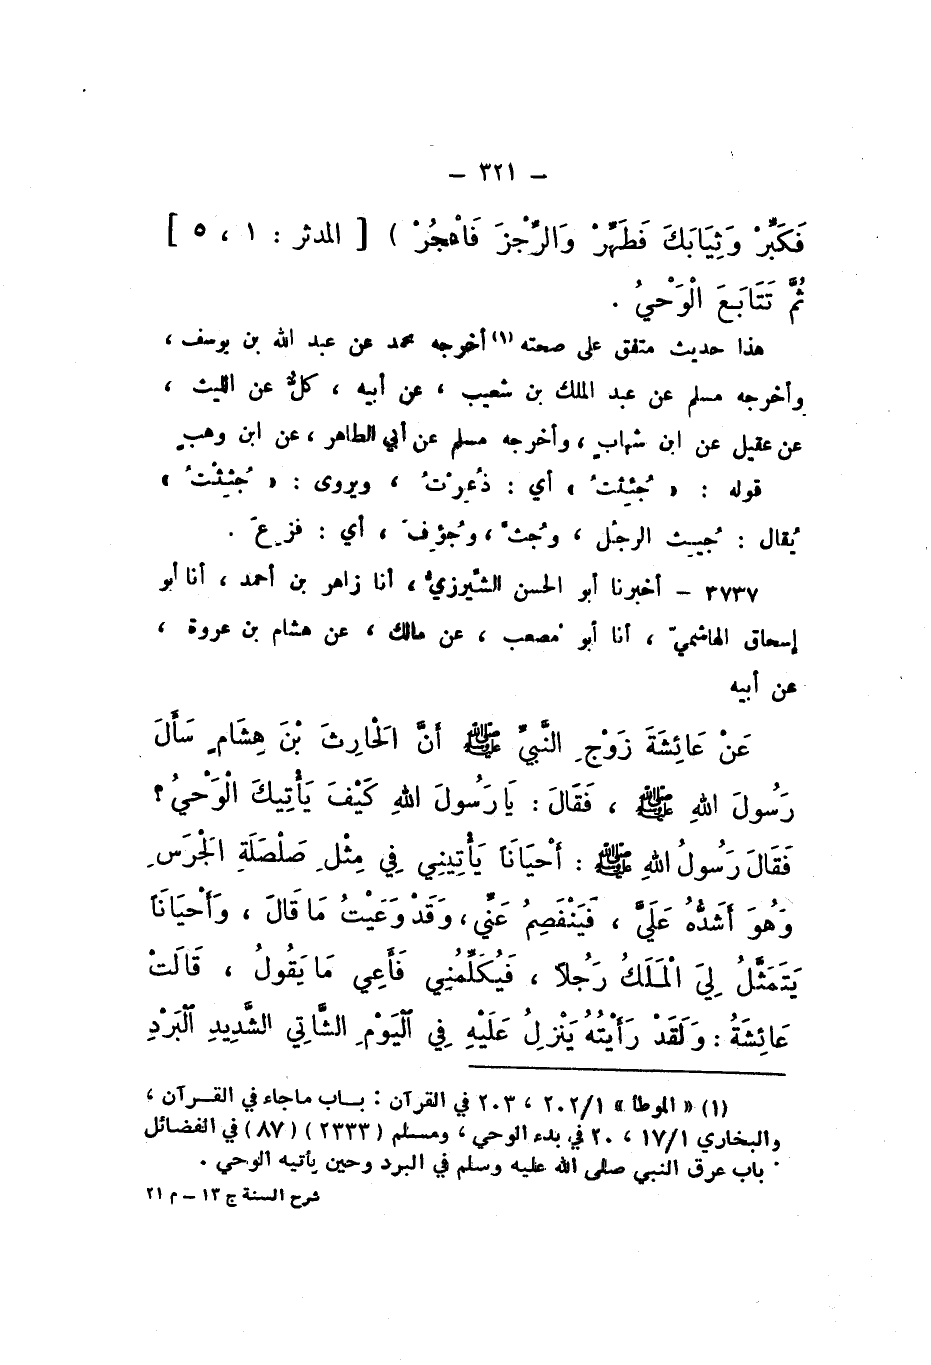 – ٣٢١ –
فَكَبِّرْ وَثِيَابَكَ فَطَهِّرْ وَالرِّجْزَ فَاهْجُرْ ) [ المدثر : ١ ، ٥ ]
ثُمَّ تَتَابَعَ الْوَحْيُ .
هذا حديث متفق على صحته (١) أخرجه محمد عن عبد الله بن يوسف ،
وأخرجه مسلم عن عبد الملك بن شعيب ، عن أبيه ، كلٌ عن الليث ،
عن عقيل عن ابن شهابٍ ، وأخرجه مسلم عن أبي الطاهر ، عن ابن وهبٍ
قوله : « جُئِثْتُ » أي : ذُعِرْتُ ، ويروى : « جُثِثْتُ »
يُقال : جُئِثَ الرجلُ ، وجُثَّ ، وجُؤِفَ ، أي : فزِعَ .
٣٧٣٧ – أخبرنا أبو الحسن الشّيرزيُّ ، أنا زاهر بن أحمد ، أنا أبو
إسحاق الهاشميّ ، أنا أبو مُصعب ، عن مالك ، عن هشام بن عروة ،
عن أبيه
عَنْ عَائِشَةَ زَوْجِ النَّبِيِّ ﷺ أَنَّ الْحَارِثَ بْنَ هِشَامٍ سَأَلَ
رَسُولَ اللهِ ﷺ ، فَقَالَ : يَا رَسُولَ اللهِ كَيْفَ يَأْتِيكَ الْوَحْيُ ؟
فَقَالَ رَسُولُ اللهِ ﷺ : أَحْيَانَاً يَأْتِينِي فِي مِثْلِ صَلْصَلَةِ الْجَرَسِ
وَهُوَ أَشَدُّهُ عَلَيَّ ، فَيَنْفَصِمُ عَنِّي ، وَقَدْ وَعَيْتُ مَا قَالَ ، وَأَحْيَانَاً
يَتَمَثَّلُ لِيَ الْمَلَكُ رَجُلاً ، فَيُكَلِّمُنِي فَأَعِي مَا يَقُولُ ، قَالَتْ
عَائِشَةُ : وَلَقَدْ رَأَيْتُهُ يَنْزِلُ عَلَيْهِ فِي الْيَوْمِ الشَّاتِي الشَّدِيدِ الْبَرْدِ
(١) « الموطأ » ٢٠٢/١ ، ٢٠٣ في القرآن : بـاب ماجاء في القـرآن ،
والبخاري ١٧/١ ، ٢٠ في بدء الوحي ، ومسلم ( ٢٣٣٣ ) ( ٨٧ ) في الفضائل
باب عرق النبي صلى الله عليه وسلم في البرد وحين يأتيه الوحي .
شرح السنة ج ١٣ – م ٢١